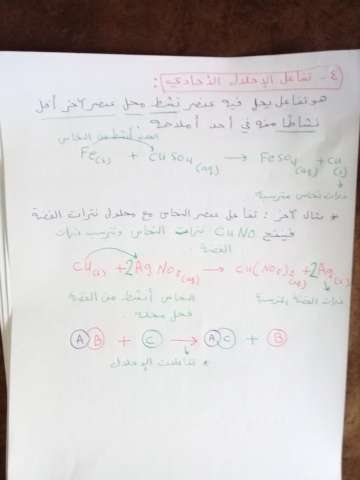 ٤- تفاعل الإحلال الأحادي:
هو تفاعل يحل فيه عنصر نشط محل عنصر لآخر أقل
نشاطًا منه في أحد أملاحه
الحديد أنشط من النحاس
Fe(s) + CuSO4(aq) → FeSO4(aq) + Cu(s)
ذرات نحاس مترسبة
* مثال لآخر: تفاعل عنصر النحاس مع محلول نترات الفضة
فينتج CuNO نترات النحاس وتترسب ذرات
الفضة.
Cu(s) + 2AgNO3(aq) → Cu(NO3)2(aq) + 2Ag(s)
النحاس أنشط من الفضة ذرات الفضة المترسبة
فحل محله.
AB + C → AC + B
* تفاعلات الإحلال